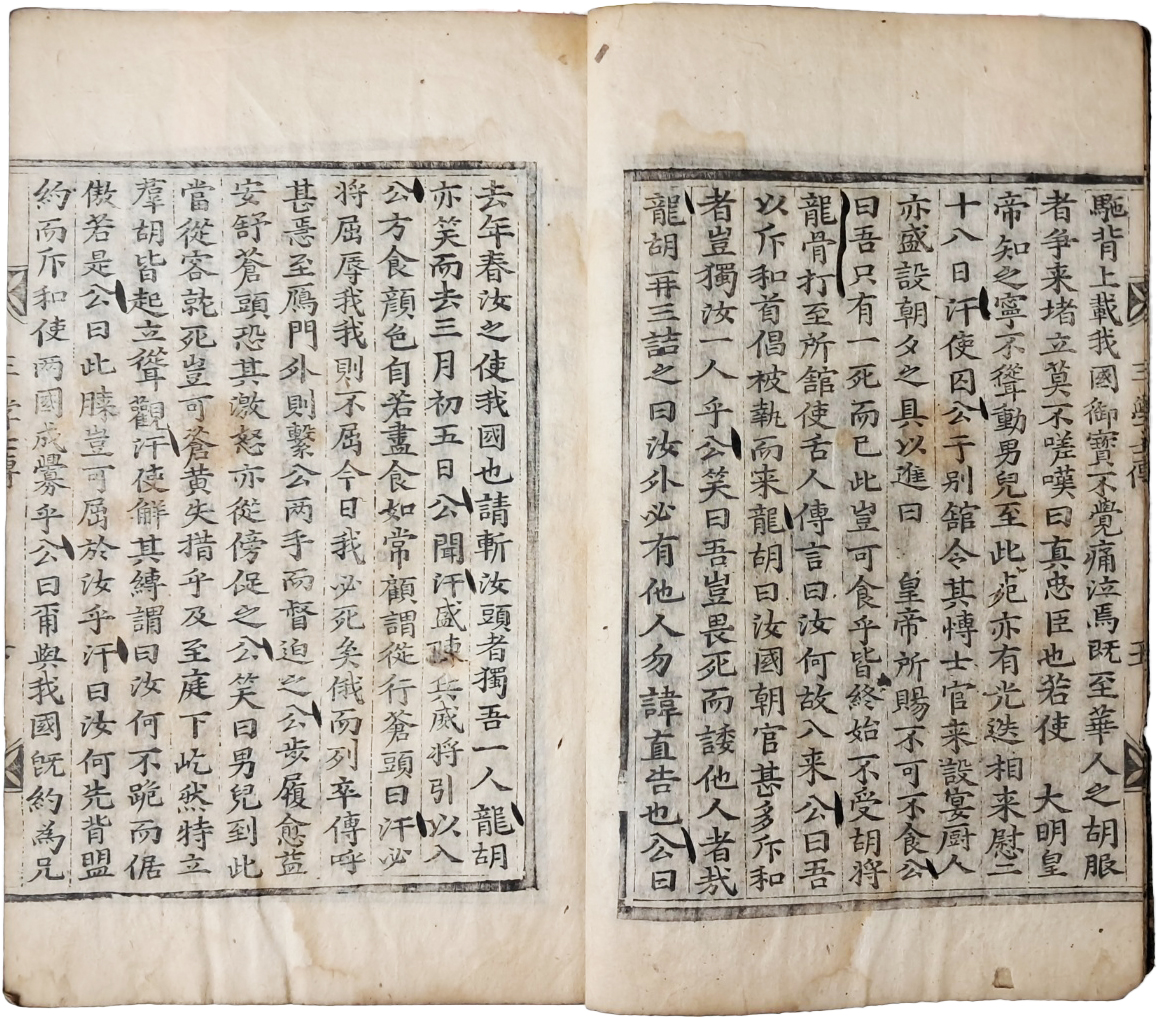 馳背上載我國御寶不覺痛泣焉既至華人之胡服
者爭来堵立莫不嗟嘆曰真忠臣也若使　大明皇
帝知之寧不聳動男兒至此死亦有光迭相来慰二
十八日汗使囚公于别舘令其愽士官来設宴厨人
亦盛設朝夕之具以進曰　皇帝所賜不可不食公
曰吾只有一死而已此豈可食乎皆終始不受胡將
龍骨打至所舘使舌人傳言曰汝何故八来公曰吾
以斥和首倡被執而来龍胡曰汝國朝官甚多斥和
者豈獨汝一人乎公笑曰吾豈畏死而諉他人者㢤
龍胡再三詰之曰汝外必有他人勿諱直告也公曰
去年春汝之使我國也請斬汝頭者獨吾一人龍胡
亦笑而去三月初五日公聞汗盛陳兵威將引以入
公方食顔色自若盡食如常顧謂從行蒼頭曰汗必
將屈辱我我則不屈今日我必死矣俄而列卒傳呼
甚惡至鴈門外則繫公两手而督迫之公步履愈益
安舒蒼頭恐其激怒亦從傍促之公笑曰男兒到此
當從容就死豈可蒼黄失措乎及至庭下屹然特立
羣胡皆起立聳觀汗使解其縛謂曰汝何不跪而倨
傲若是公曰此膝豈可屈於汝乎汗曰汝何先背盟
約而斥和使两國成釁乎公曰甭與我國旣約為兄
三學士傳
五